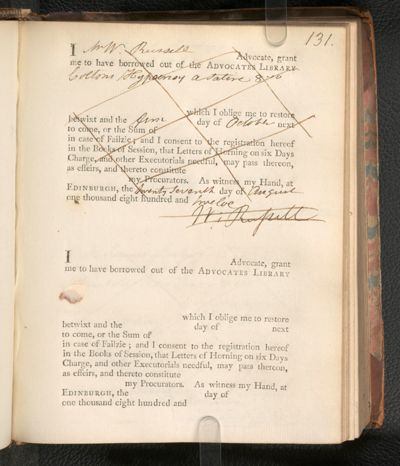 131.
I Mr W. Russell Advocate, grant
me to have borrowed out of the ADVOCATES LIBRARY
a Satire 8vo
which I oblige me to restore
betwixt and the first day of October next
to come, or the Sum of
in case of Failzie; and I consent to the registration hereof
in the Books of Session, that Letters of Horning on six Days
Charge, and other Executorials needful, may pass thereon,
as effeirs, and thereto constitute
my Procurators. As witness my Hand, at
EDINBURGH, the twenty Seventh day of August
one thousand eight hundred and twelve
W. Russell
I Advocate, grant
me to have borrowed out of the ADVOCATES LIBRARY
which I oblige me to restore
betwixt and the day of next
to come, or the Sum of
in case of Failzie; and I consent to the registration hereof
in the Books of Session, that Letters of Horning on six Days
Charge, and other Executorials needful, may pass thereon,
as effeirs, and thereto constitute
my Procurators. As witness my Hand, at
EDINBURGH, the day of
one thousand eight hundred and